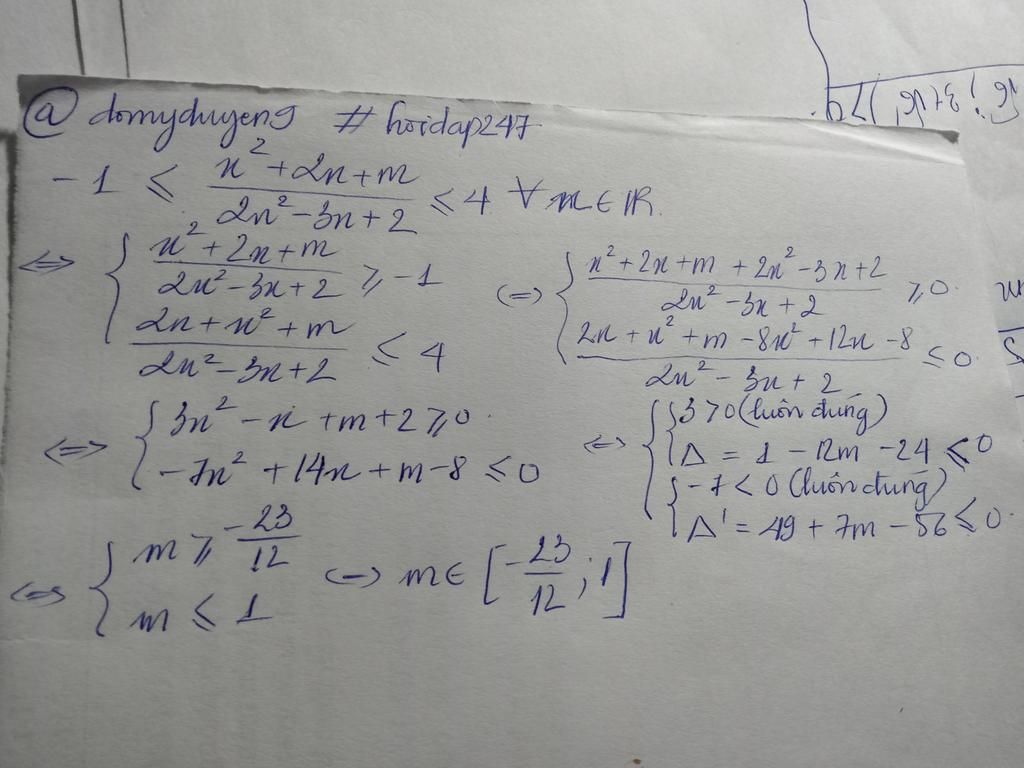 @ domyduyeng # hoidap247
-1 ≤ \frac{x^2+2x+m}{2x^2-3x+2} ≤ 4 ∀ x ∈ IR.
⇔ { \frac{x^2+2x+m}{2x^2-3x+2} ≥ -1
\frac{2x+x^2+m}{2x^2-3x+2} ≤ 4
⇔ { \frac{x^2+2x+m+2x^2-3x+2}{2x^2-3x+2} ≥ 0.
\frac{2x+x^2+m-8x^2+12x-8}{2x^2-3x+2} ≤ 0.
⇔ { 3x^2-x+m+2 ≥ 0.
-7x^2+14x+m-8 ≤ 0
⇔ { { 3 > 0 (luôn đúng)
Δ = 1 - 12m - 24 ≤ 0
{ -7 < 0 (luôn đúng)
Δ' = 49 + 7m - 56 ≤ 0.
⇔ { m ≥ \frac{-23}{12}
m ≤ 1
⇔ m ∈ [\frac{-23}{12}; 1]